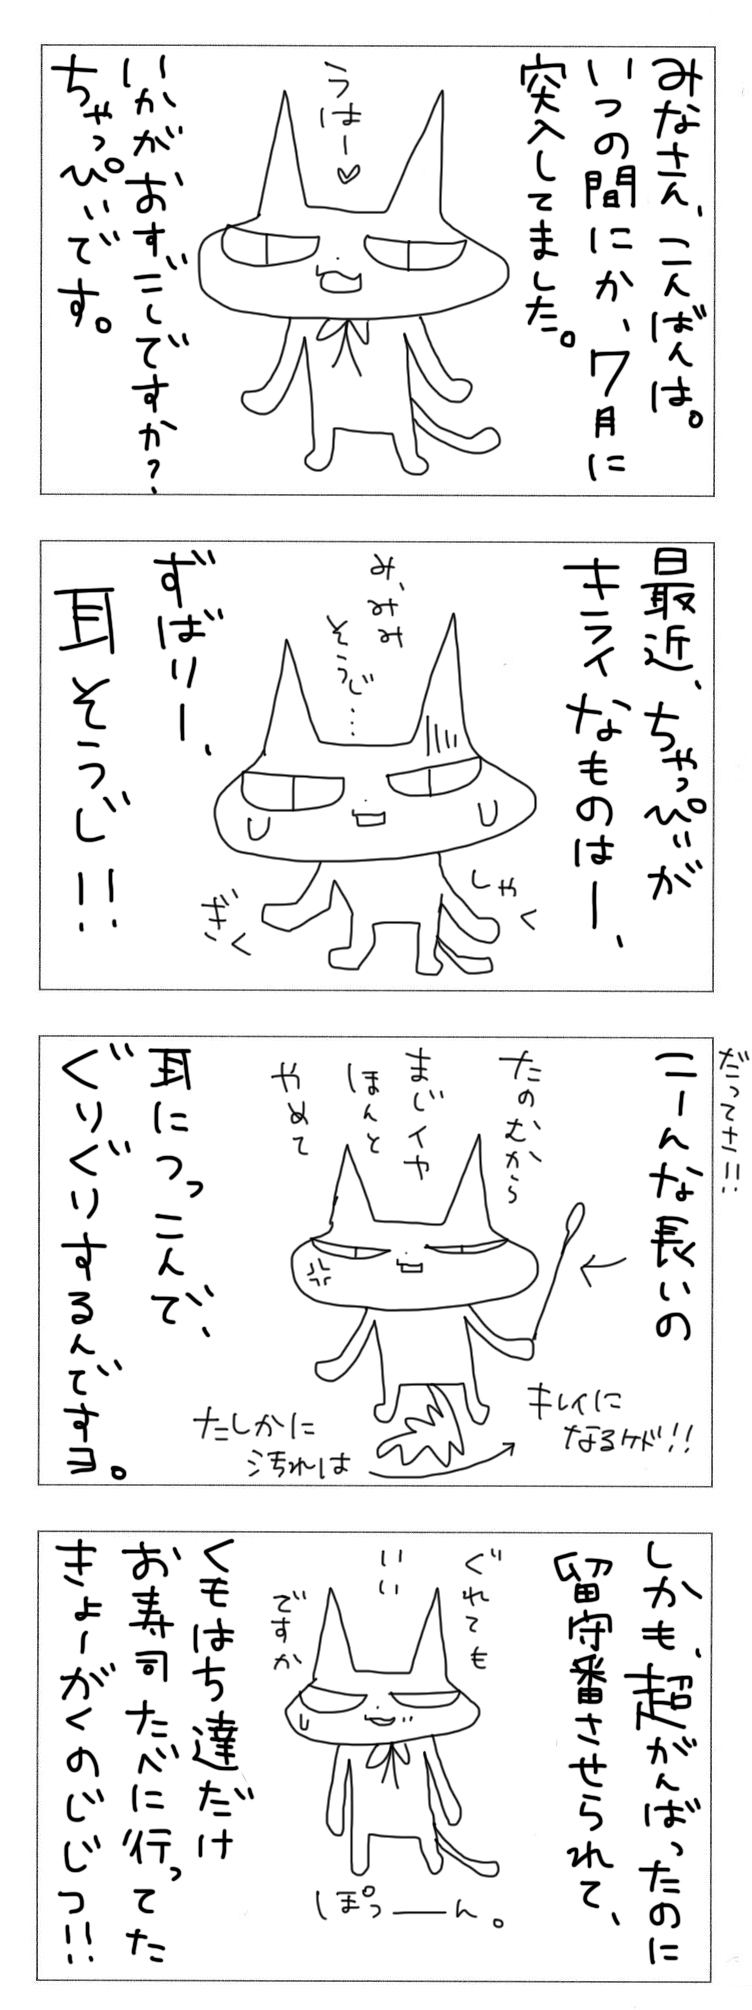 みなさん、こんばんは。
いつの間にか、7月に
突入してました。
うはー♡
いかがおすごしですか?
ちゃっぴぃです。
最近、ちゃっぴぃが
キライなものはー、
み、みみ
そうじ…
しゃく
ぎく
ずばりー、
耳そうじ!!
だってさ!!
こーんな長いの
たのむから
まじイヤ
ほんと
やめて
耳につっこんで、
ぐりぐりするんですヨ。
たしかに
汚れは
キレイに
なるケド!!
しかも、超がんばったのに
留守番させられて、
ぐれても
いい
ですか
くもはち達だけ
お寿司たべに行ってた
きょーがくのじじつ!!
ぽっーん。